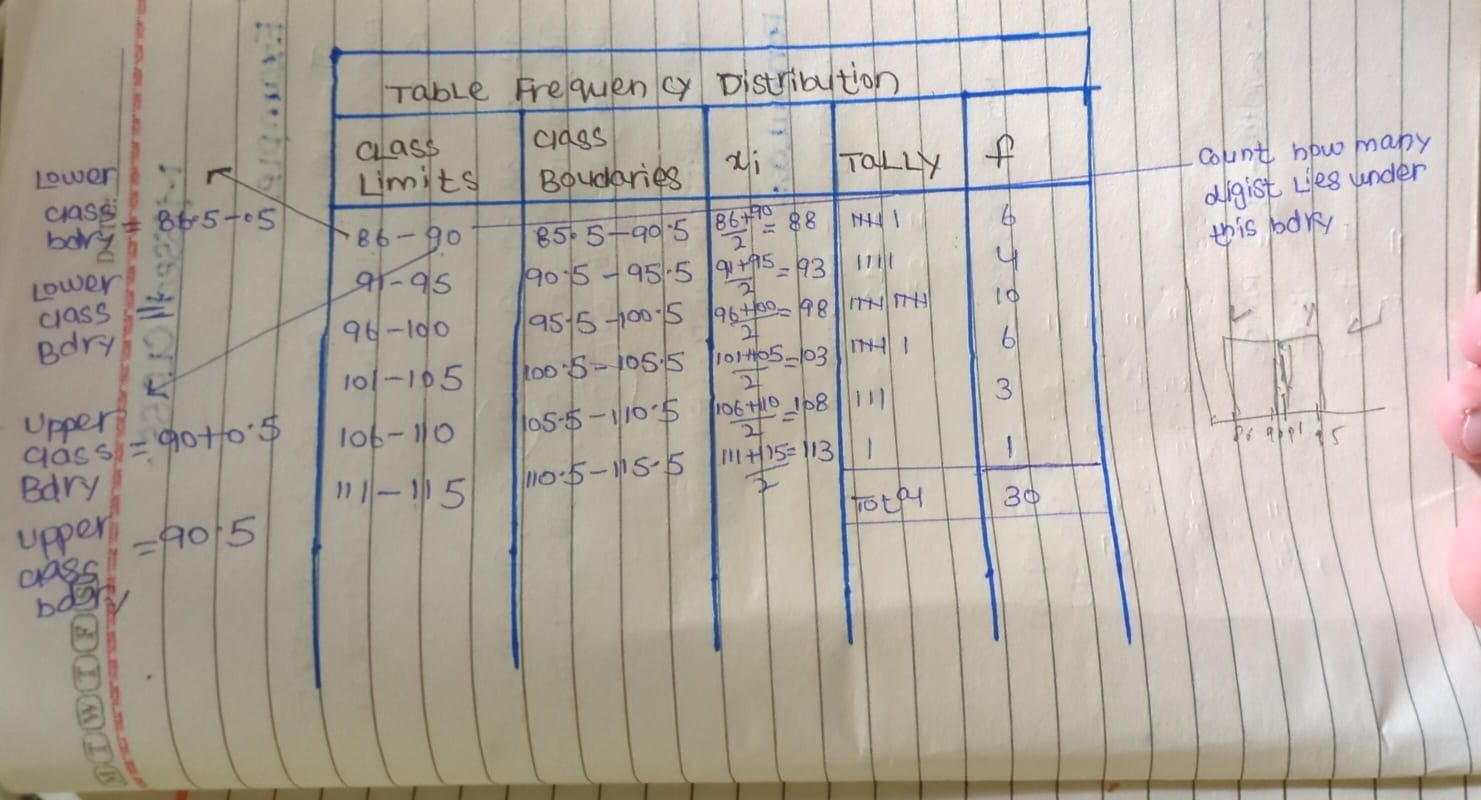 Table Frequency Distribution
Class Limits | Class Boudaries | xi | TALLY | f
86-90 | 85.5-90.5 | 86+90/2 = 88 | 𝍸 | | 6
91-95 | 90.5-95.5 | 91+95/2 = 93 | |||| | 4
96-100 | 95.5-100.5 | 96+100/2 = 98 | 𝍸 𝍸 | 10
101-105 | 100.5-105.5 | 101+105/2 = 103 | 𝍸 | | 6
106-110 | 105.5-110.5 | 106+110/2 = 108 | ||| | 3
111-115 | 110.5-115.5 | 111+115/2 = 113 | | | 1
Total | 30
Lower
class = 86.5-.5
bdry
Lower
class =
Bdry
Upper
class = 90+0.5
Bdry
Upper
class = 90.5
bdry
Count how many
digist Lies under
this bdry
86 90 91 95
M T W T F S